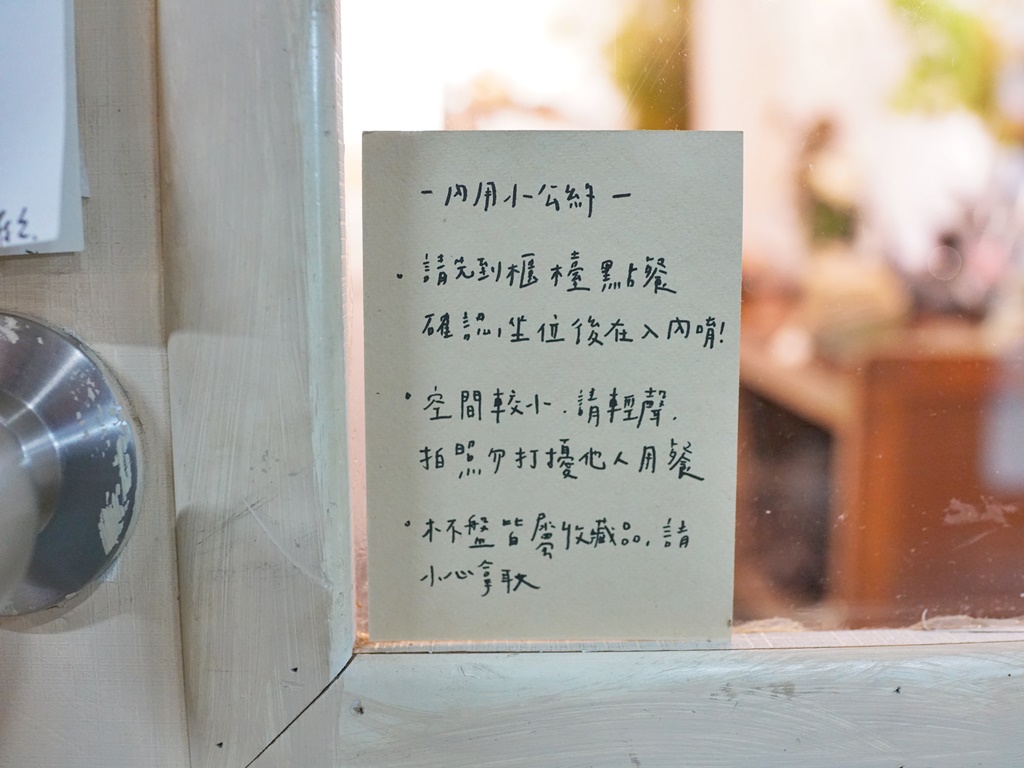 －內用小公約－
・請先到櫃檯點餐
確認坐位後在入內唷！
・空間較小．請輕聲．
拍照勿打擾他人用餐
・杯盤皆屬收藏品．請
小心拿取